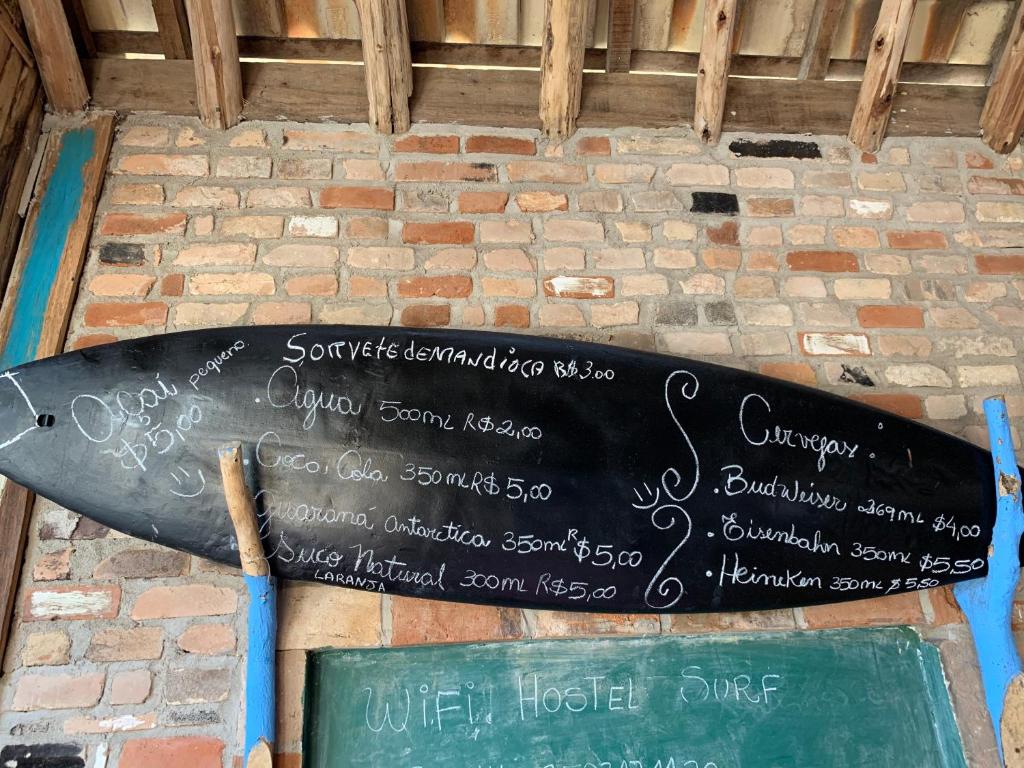 Açaí pequeno.
$5,00
SORVETE de MANDIOCA R$3.00
. Água 500ml R$2,00
Coco, Cola 350ml R$5,00
Guaraná Antarctica 350ml R$5,00
Suco Natural 300ml R$5,00
LARANJA
Cervejas:
. Budweiser 269ml $4,00
. Eisenbahn 350ml $5,50
. Heineken 350ml $5,50
WiFi HOSTEL SURF